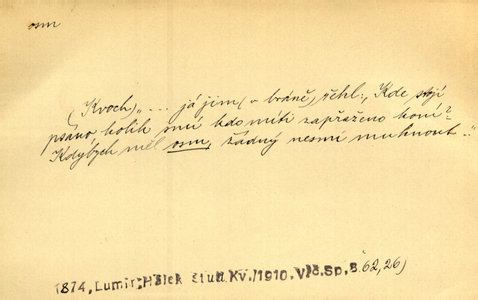 osm
(Kvoch)„... já jim (v bráně) řekl:, Kde stojí
psáno, kolik smí kdo míti zapřaženo koní?
Kdybych měl osm, žádný nesmí muknout.."
1874, Lumír, Hálek stud. Kv./1910, Vlč. Sp, s. 62, 26)